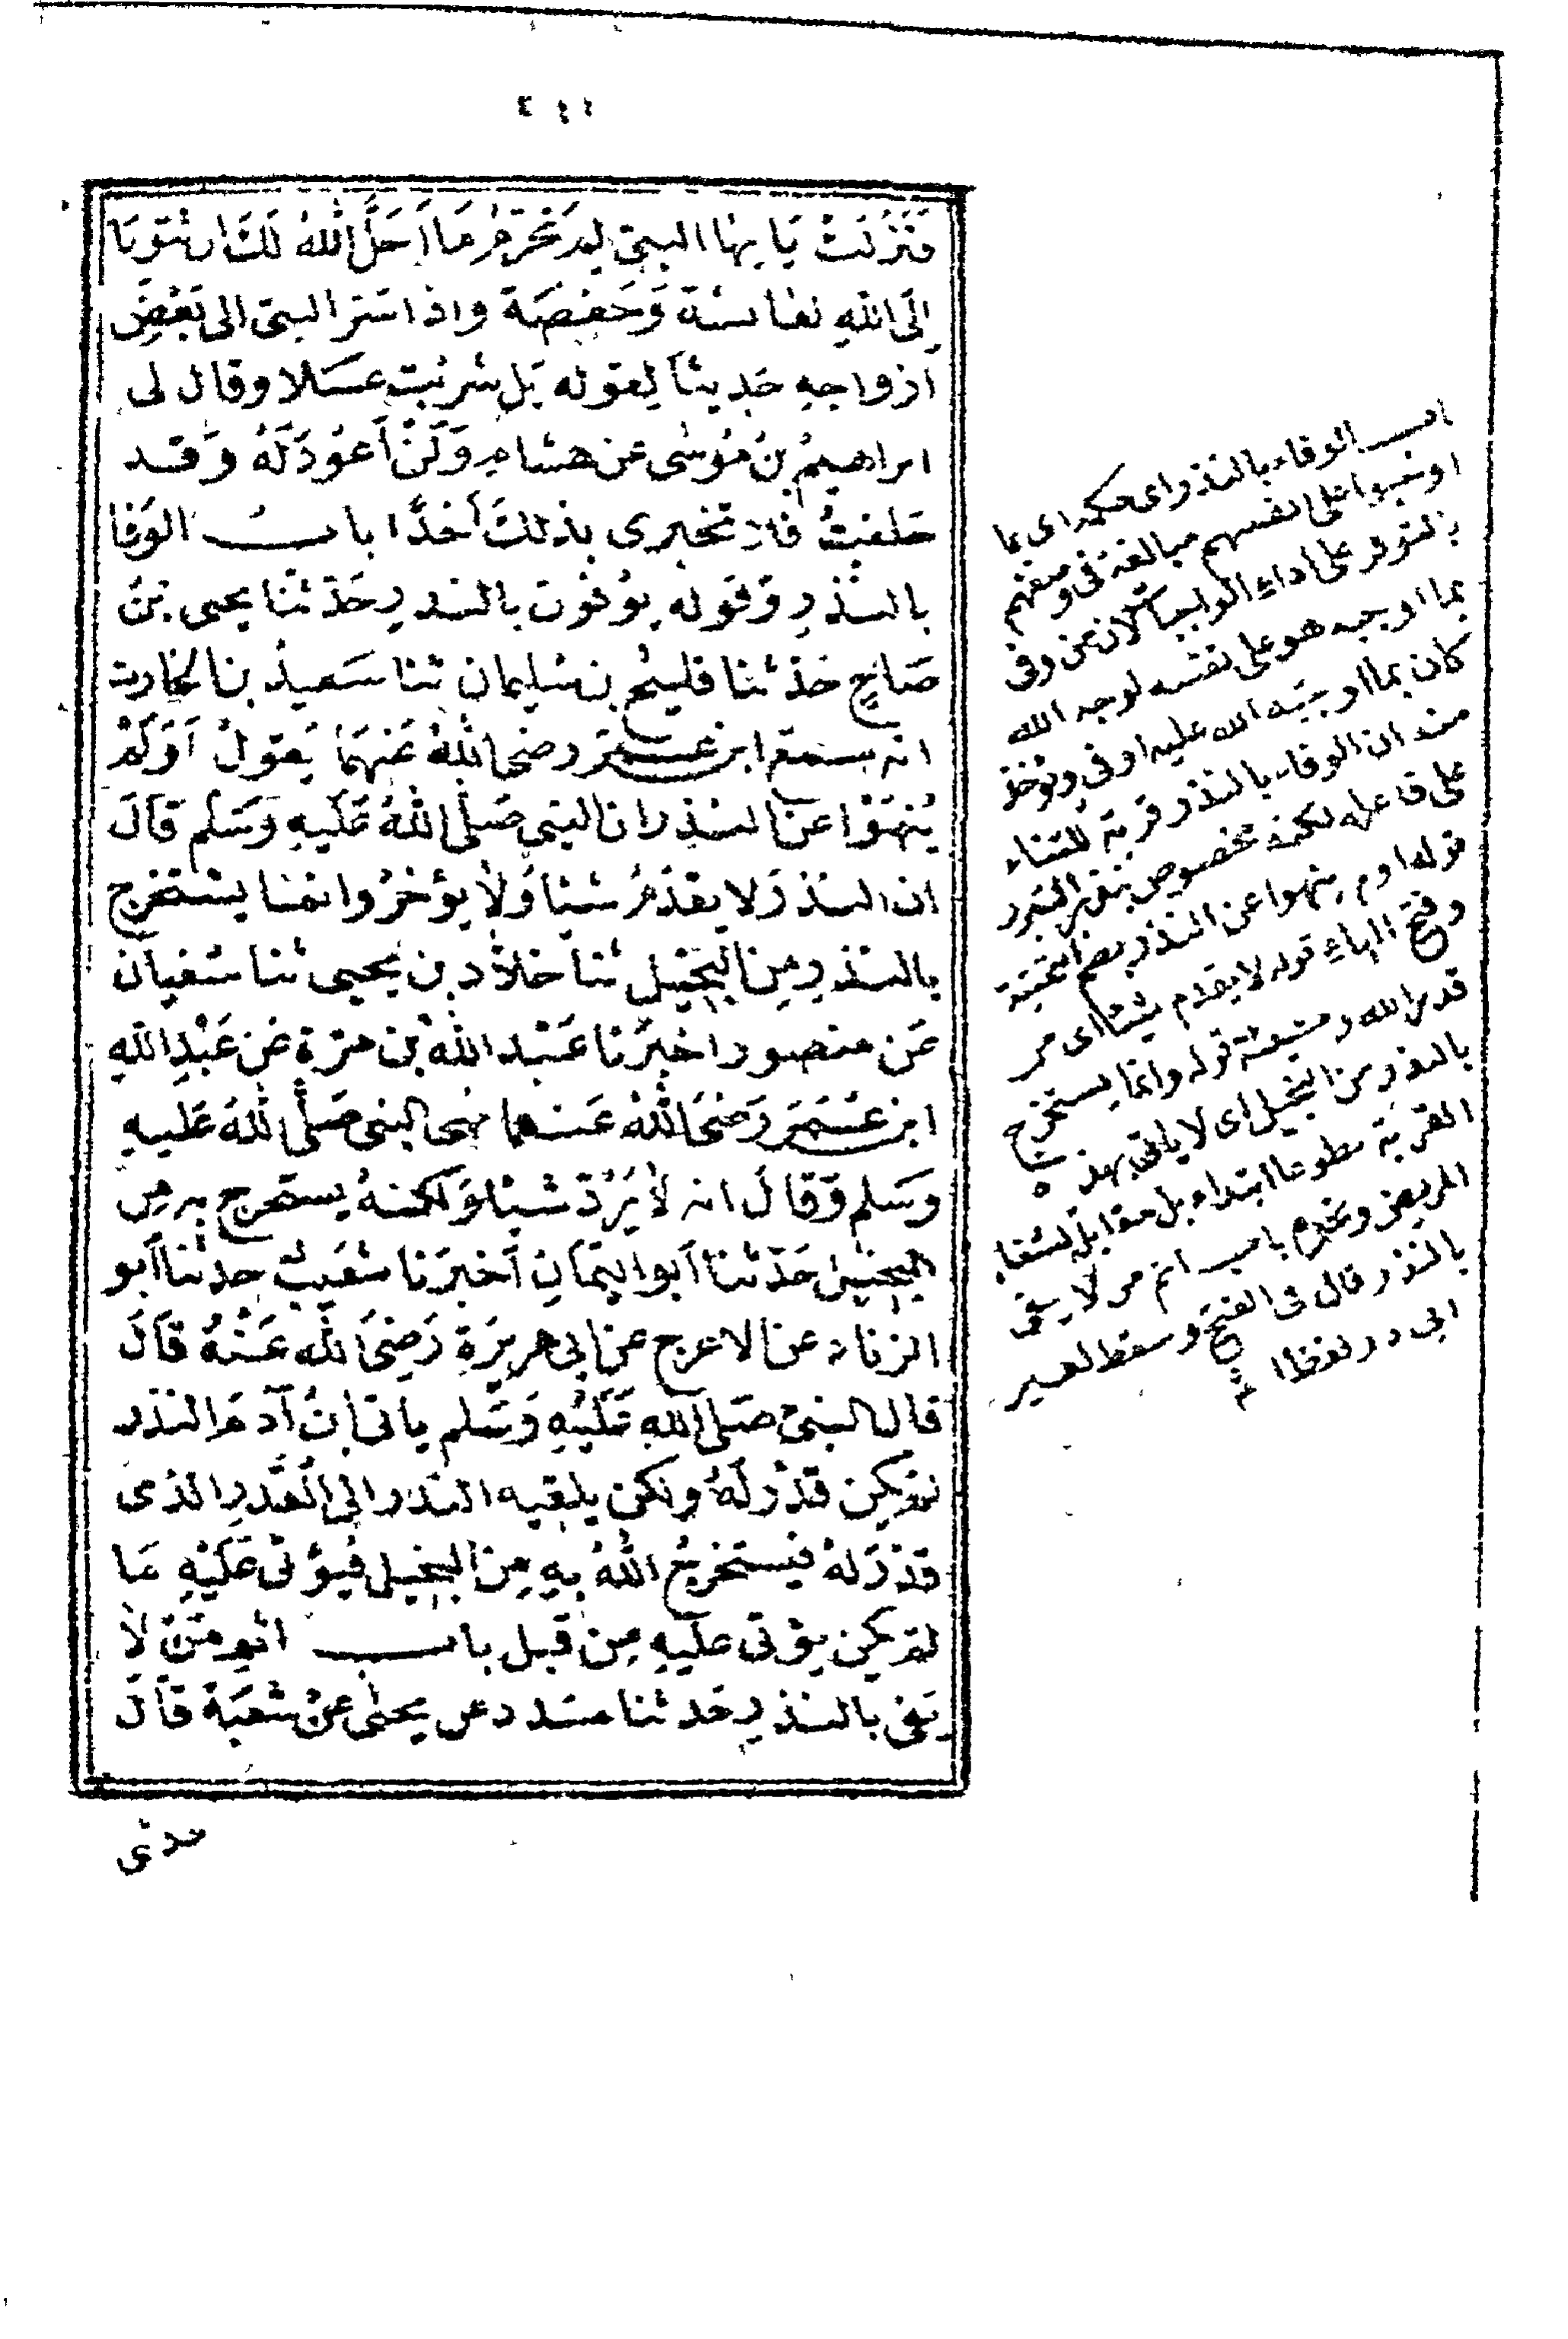 فَنَزَلَتْ يَا ايها النبي لِمَ تُحَرِّمُ مَا اَحَلَّ اللهُ لَكَ ان تتوبَا
اِلَى اللهِ لعائشة وَحَفصَة واذ اسَر النبي الى بَعْضِ
اَزواجِهِ حَدِيثاً لِقوله بَل شربْت عسَلا وقال لى
ابراهيمُ بنُ مُوسٰى عَن هشامٍ وَلَنْ اَعُوْدَ لَهُ وَقد
حَلفتُ فلا تخبرى بذلكَ اَحَدًا باب الوَفا
بالنذرِ وَقوله يوُفوْنَ بالنذرِ حَدّثنَا يحيى بنُ
صَالِحٍ حَدّثنا فليحُ بن سُليمان ثنا سَعيدُ بنُ الحَارِث
انه سمعَ ابن عُمَرَ رضى اللهُ عَنهمَا يَقولُ اَوَلَمْ
يُنهَوْا عَن النذرِ ان النبي صَلى اللهُ عَلَيهِ وَسَلم قَالَ
ان النذرَ لا يقدّمُ شيئاً وَلاَ يؤخرُ وانمَا يستخرج
بالنذرِ مِنَ البَخيلِ ثنا خَلاّد بن يَحيى ثنا سُفيانُ
عَن منصورٍ اخبرَنا عَبْد اللهِ بن مرّة عَن عَبْدِ اللهِ
ابن عُمَرَ رَضىَ اللهُ عَنهما نهى النبى صَلى اللهُ عَليهِ
وسَلم وَقالَ انه لاَ يَرُدّ شيئا وَلكنهُ يستخرج به من
البخيل حَدّثنا اَبو اليَمَانِ اَخبرَنا شعَيبٌ حدثنا اَبو
الزناد عن الاعرج عن ابى هريرَةِ رَضىَ اللهُ عَنْهُ قالَ
قال النبىُّ صَلى اللهِ عَلَيْهِ وَسَلم ياتى ابنَ آدمَ النذر
لم يكن قدّرَ لَهُ ولكن يلقيه النذر الى القَدرِ الذى
قدّرَ لهُ فيستخرِجُ اللهُ بِهِ مِنَ البخيل فيؤتى عَلَيْهِ مَا
لم يكن يؤتى عليهِ مِن قبل باب اثمِ مَنْ لاَ
يَفى بالنذرِ حَدثنا مسَدد عن يحيٰى عَنْ شعبَة قالَ
حدثى
اب الوفاء بالنذر اى حكمه اى بما
اوجبوا على انفسهم مبالغة فى وصفهم
بالتوفر على اداء الواجبات لان من وفى
بما اوجبه هو على نفسه لوجه الله
كان بما اوجبه الله عليه اوفى ويؤخذ
منه ان الوفاء بالنذر قربة للثناء
على فاعله لكنه مخصوص بنذر التبرر
قوله اولم ينهوا عن النذر بضم التحتية
وفتح الهاء قوله لا يقدم شيئا اى من
قدر الله ومشيئته قوله وانما يستخرج
بالنذر من البخيل اى لا ياتى بهذه
القربة تطوعا ابتداء بل مقابل لشفاء
المريض ونحوه باب اثم من لا يفى
بالنذر قال فى الفتح وسقط لغير
ابى ذر لفظ ا